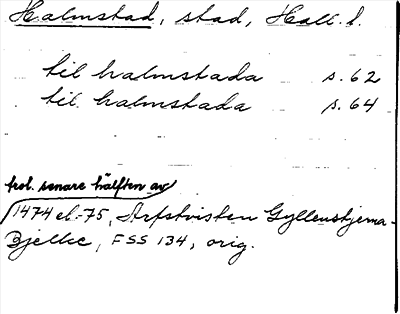 Halmstad, stad, Hall. l.
til halmstada s. 62
til halmstada s. 64
trol. senare hälften av
1474 el.-75, Arfstvisten Gyllenstjerna-
Bjelke, FSS 134, orig.